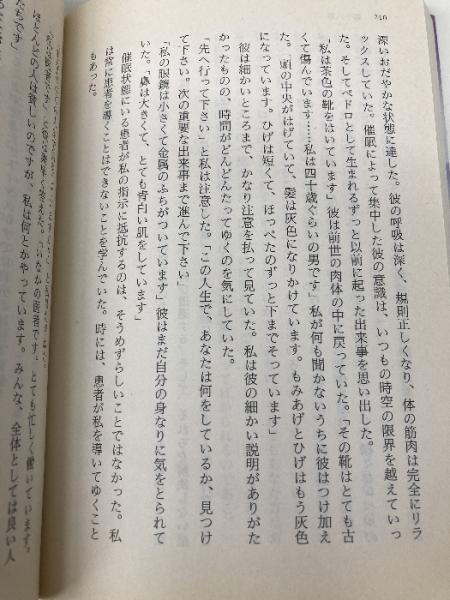 210
深いおだやかな状態に達した。彼の呼吸は深く、規則正しくなり、体の筋肉は完全にリラ
ックスしていた。催眠によって集中した彼の意識は、いつもの時空の限界を越えていっ
た。そしてペドロとして生まれるずっと以前に起った出来事を思い出した。
「私は茶色の靴をはいています」彼は前世の肉体の中に戻っていた。「その靴はとても古
くて傷んでいます……私は四十歳ぐらいの男です」私が何も聞かないうちに彼はつけ加え
た。「頭の中央がはげていて、髪は灰色になりかけています。もみあげとひげはもう灰色
になっています。ひげは短くて、ほっぺたのずっと下までそっています」
彼は細かいところまで、かなり注意を払って見ていた。私は彼の細かい説明がありがた
かったものの、時間がどんどんたってゆくのを気にしていた。
「先へ行って下さい」と私は注意した。「この人生で、あなたは何をしているか、見つけ
て下さい。次の重要な出来事まで進んで下さい」
「私の眼鏡は小さくて金属のふちがついています」彼はまだ自分の身なりに気をとられて
いた。「鼻は大きくて、とても青白い肌をしています」
催眠状態にいる患者が私の指示に抵抗するのは、そうめずらしいことではなかった。私
は常に患者を導くことはできないことを学んでいた。時には、患者が私を導いてゆくこと
もあった。
「いなかの医者です。とても忙しく働いています。
ほとんどの人は貧しいのですが、私は何とかやっています。みんな、全体としては良い人
たちです」